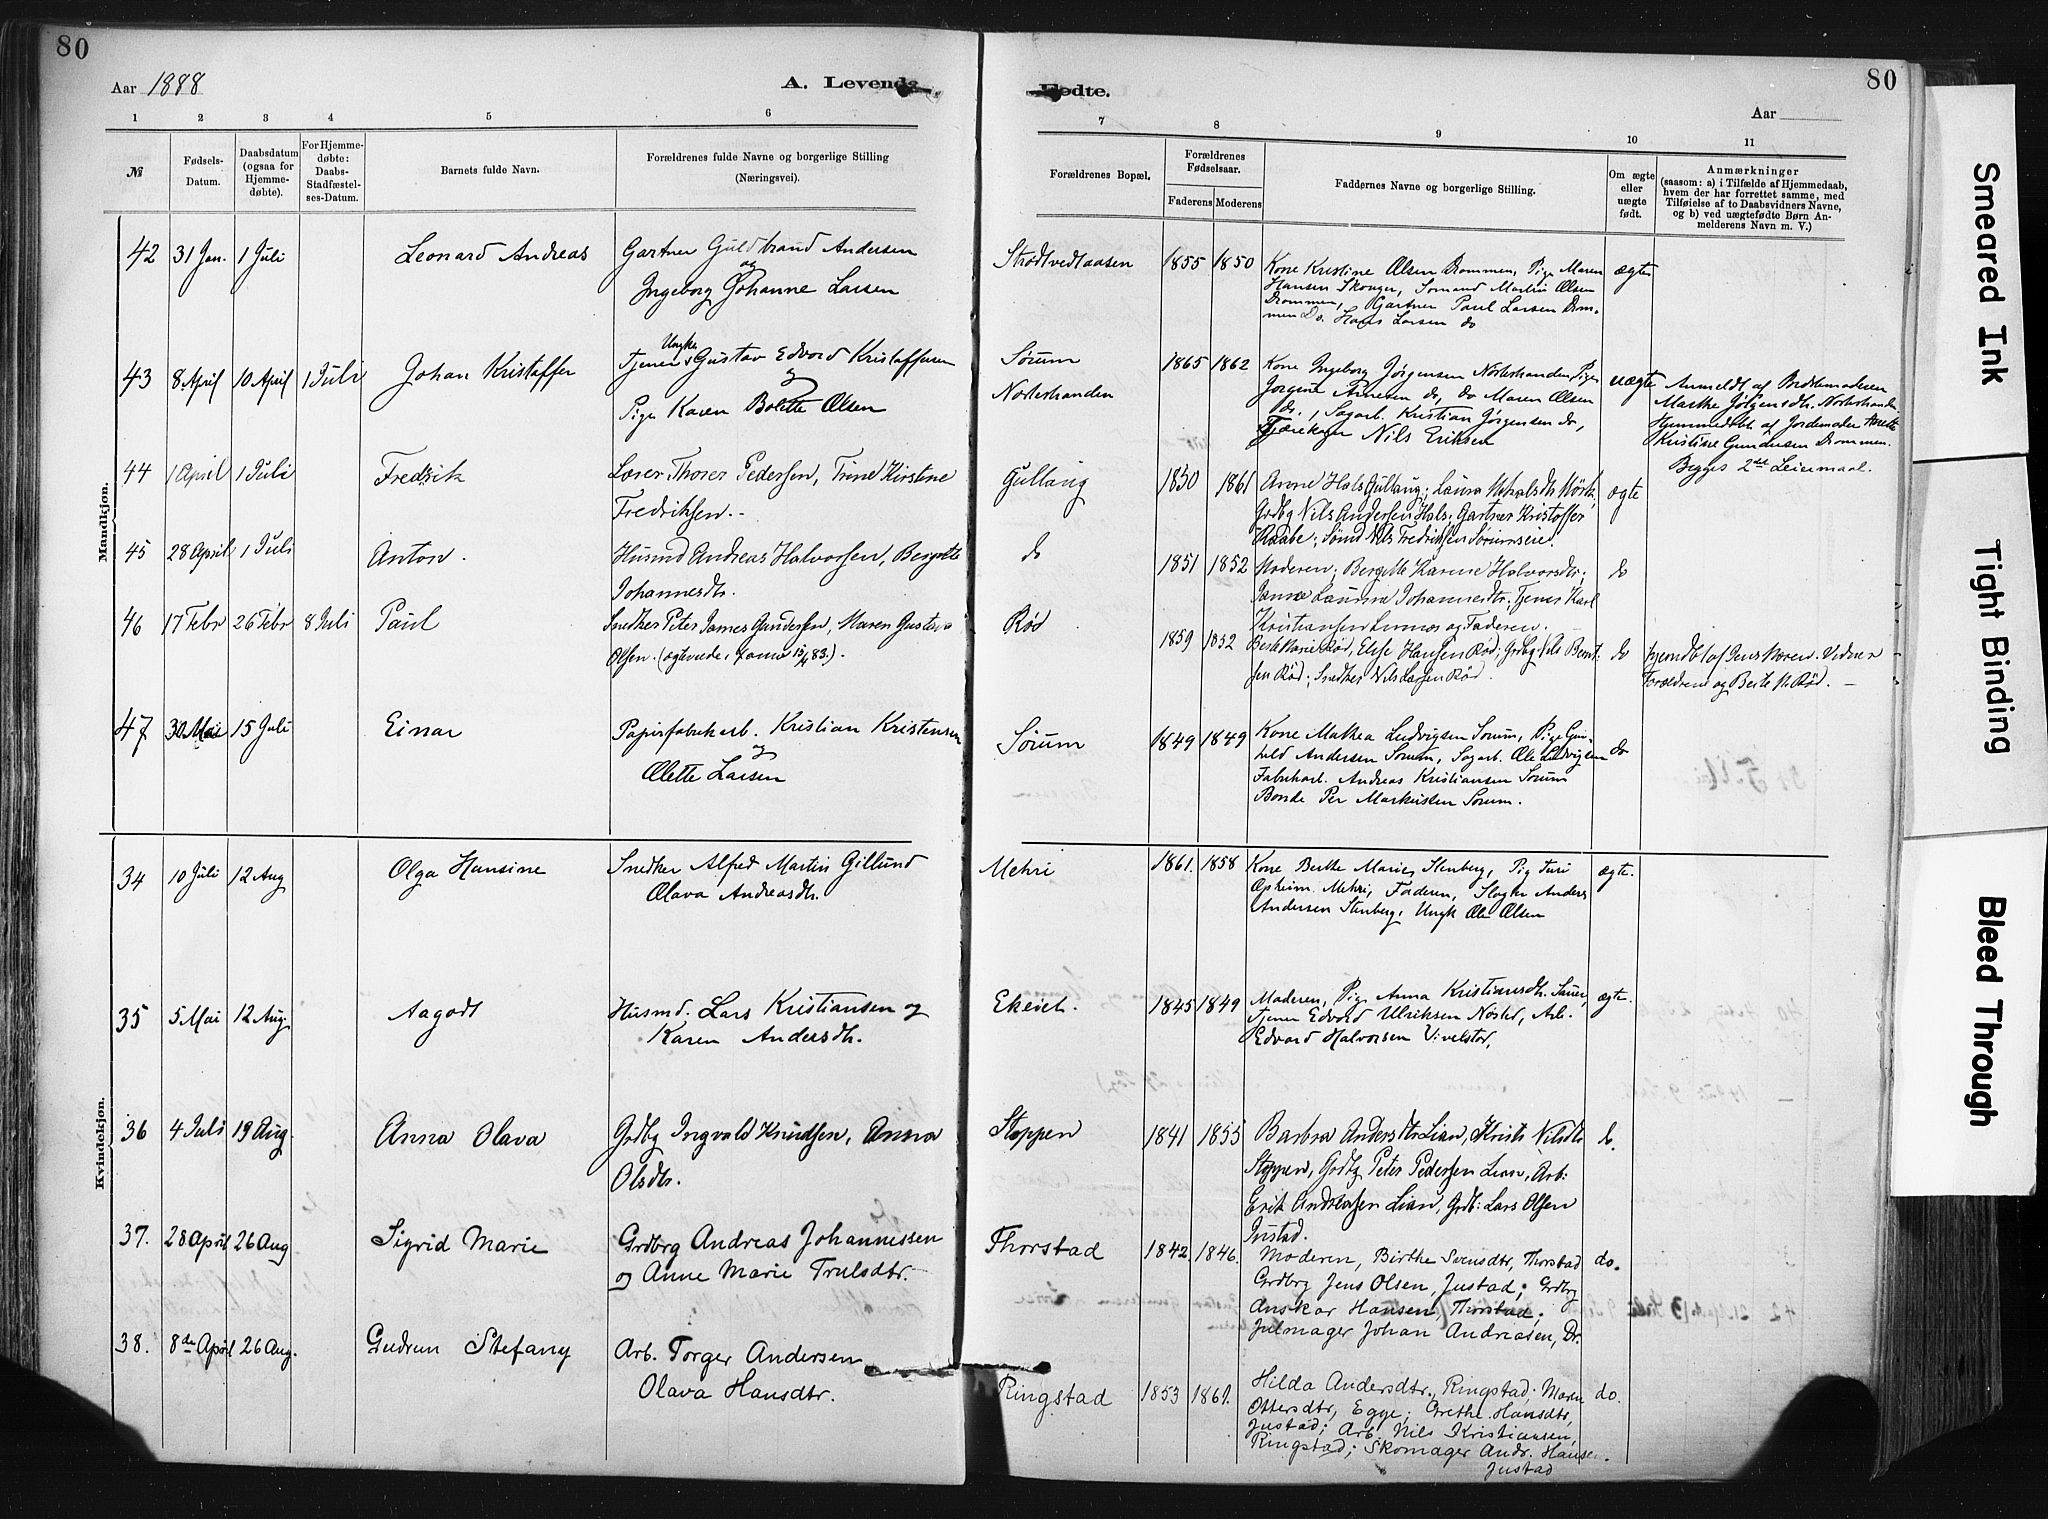 80
Aar 1888
A. Levende
1 2 3 4 5 6
№
Fødsels-
Datum.
Daabsdatum
(ogsaa for
Hjemme-
døbte).
For Hjemme-
døbte:
Daabs-
Stadfæstel-
ses-Datum.
Barnets fulde Navn.
Forældrenes fulde Navne og borgerlige Stilling
(Næringsvei).
Mandkjøn.
42 31 Jan. 1 Juli Leonard Andreas Gartner Guldbrand Andersen
og
Ingeborg Johanne Larsen
Ungka
43 8 April 10 April 1 Juli Johan Kristoffer Tjener Gustav Edvard Kristoffersen
og
Pige Karen Bolette Olsen
44 1 April 1 Juli Fredrik Lærer Thorer Pedersen, Trine Kirstine
Fredriksen.
45 28 April 1 Juli Anton. Husmd Andreas Halvorsen, Bergitte
Johannesdtr.
46 17 Febr 26 Febr 8 Juli Paul Snedker Peter James Gundersen, Maren Gustava
Olsen.
47 30 Mai 15 Juli Einar Papirfabrikarb. Kristian Kristensen
og
Olette Larsen
Kvindekjøn.
34 10 Juli 12 Aug Olga Hansine Snedker Alfred Martin Gillund
Olava Andreasdtr.
35 5 Mai 12 Aug. Aagodt Husmd. Lars Kristiansen og
Karen Andersdtr.
36 4 Juli 19 Aug. Anna Olava Grdbg Ingvald Knudsen, Anna
Olsdtr.
37. 28 April 26 Aug Sigrid Marie Grdbrg Andreas Johannessen
og Anne Marie Trulsdtr.
38. 8de April 26 Aug. Gudrun Stefany Arb. Torger Andersen
Olava Hansdtr.
80
Fødte.
Aar
7 8 9 10 11
Forældrenes Bopæl.
Forældrenes
Fødselsaar.
Faderens Moderens
Faddernes Navne og borgerlige Stilling.
Om ægte
eller
uægte
født.
Anmærkninger
(saasom: a) i Tilfælde af Hjemmedaab,
hvem der har forrettet samme, med
Tilføielse af to Daabsvidners Navne,
og b) ved uægtefødte Børn An-
melderens Navn m. V.)
Strødtvedtaasen 1855 1850 Kone Kristine Olsen Drammen, Pige Maren ægte
Hansen Skouger, Sømand Martin Olsen
Drammen, Gartner Paul Larsen Dram-
men Do. Hans Larsen do
Sørum
Nordstranden
1865 1862 Kone Ingeborg Jørgensen Pige uægte
do Maren Olsen
do., Sagarb. Kristian Jørgensen do,
Nils Eriksen
Anmeldt af Bedstemoderen
Hjemmedøbt af Jordemoder
Kristine Gundersen Drammen.
Begges 2det Leiermaal.
Gullaug 1850 1861 Anne Hals Gullaug; Laura ægte
Grdbg Nils Andersen Hals; Gartner Kristoffer
Raabe; Sømd Nils Fredriksen
do 1851 1852 Moderen; Bergitte Karine Halvorsdtr; do
Laurina Johannesdtr; Tjener Karl
Kristiansen og Faderen.
Rød 1859 1852 Berte Marie Rød, Else Hansen Rød; Grdbg. Nils Bernt- do
sen Rød; Snedker Nils Larsen Rød.
Vidner
Forældrene og Berte M. Rød.
Sørum 1849 1849 Kone Mathea Ludvigsen Sørum, Pige Gun- do
hild Andersen Sørum, Sagarb. Ole Ludvigsen
Fabrikarb. Andreas Kristiansen Sørum
Bonde Per Markussen Sørum.
Mehri 1861. 1858 Kone Berthe Marie Stenberg, Pig Turi ægte.
Opheim Mehri, Faderen, Slagter Anders
Andersen Stenberg, Ungk Ole Olsen
Ekeiet. 1845 1849 Moderen, Pige Anna Kristiansdtr. ægte.
Tjener Edvard Ulriksen Nøsted, Arb.
Edvard Halvorsen Vivelstad,
Stoppen 1841 1855 Barbra Andersdtr Lian, Kristi Nilsdtr do.
Stoppen, Grdbg Peter Pedersen Lian, Arb:
Erik Andreasen Lian, Grdb: Lars Olsen
Justad.
Thorstad 1842. 1846. Moderen, Birthe Svensdtr, Thorstad do.
Grdbrg Jens Olsen, Justad; Grdbg
Anskar Hansen, Thorstad;
Julmager Johan Andreasen, Dr.
Ringstad 1853 1861. Hilda Andersdtr., Ringstad; Maren do.
Ottersdtr, Egge; Grethe Hansdtr,
Justad; Arb. Nils Kristiansen,
Ringstad; Skomager Andr. Hansen.
Justad
Smeared Ink
Tight Binding
Bleed Through